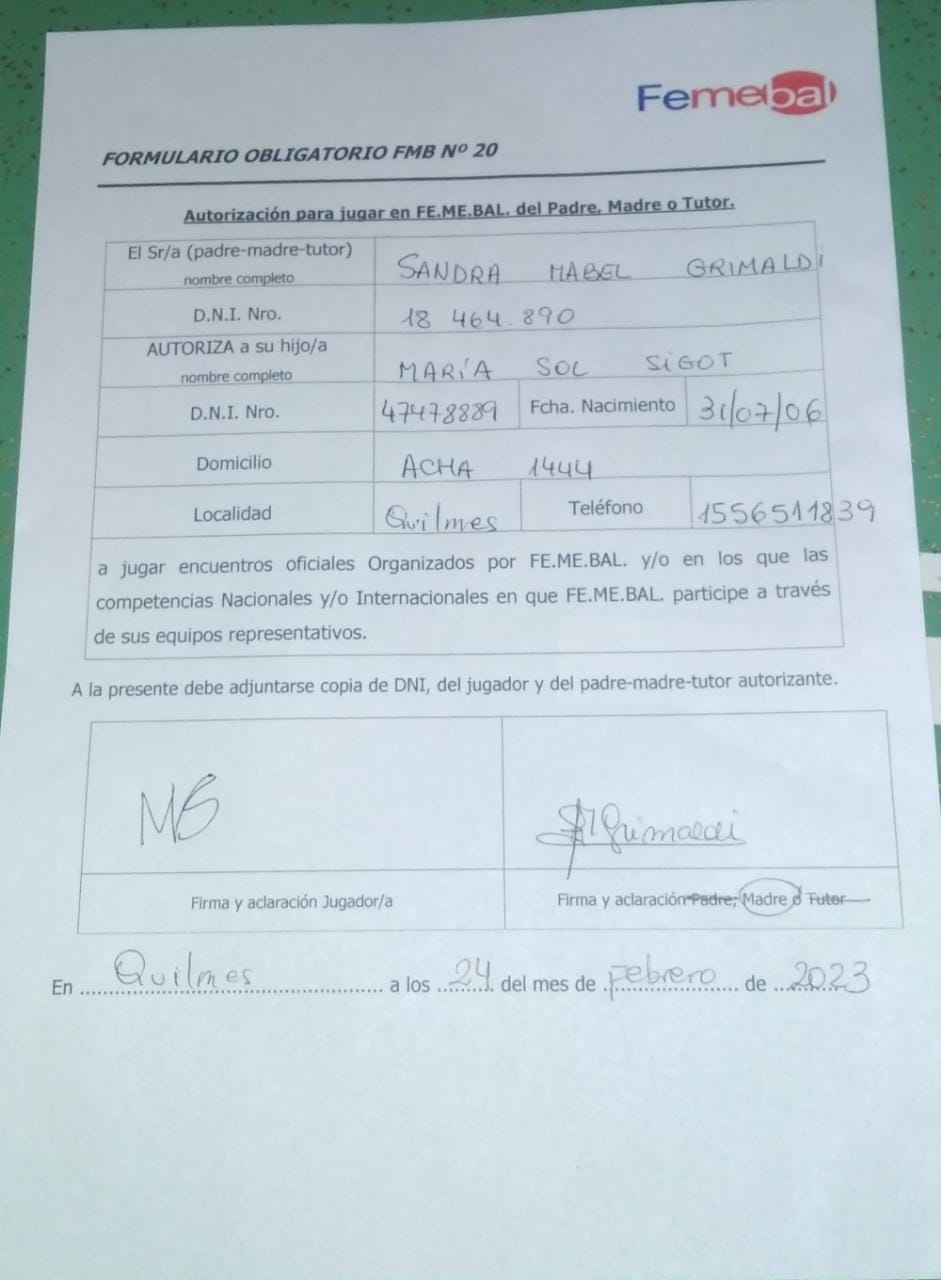 Femebal
FORMULARIO OBLIGATORIO FMB Nº 20
Autorización para jugar en FE.ME.BAL. del Padre, Madre o Tutor.
El Sr/a (padre-madre-tutor)
nombre completo
SANDRA MABEL GRIMALDi
D.N.I. Nro.
18 464.890
AUTORIZA a su hijo/a
nombre completo
MARÍA SOL SiGOT
D.N.I. Nro.
47478889
Fcha. Nacimiento
31/07/06
Domicilio
ACHA 1444
Localidad
Quilmes
Teléfono
1556511839
a jugar encuentros oficiales Organizados por FE.ME.BAL. y/o en los que las
competencias Nacionales y/o Internacionales en que FE.ME.BAL. participe a través
de sus equipos representativos.
A la presente debe adjuntarse copia de DNI, del jugador y del padre-madre-tutor autorizante.
MS
Grimaldi
Firma y aclaración Jugador/a
Firma y aclaración Padre, Madre o Tutor
En Quilmes a los 24 del mes de Febrero de 2023